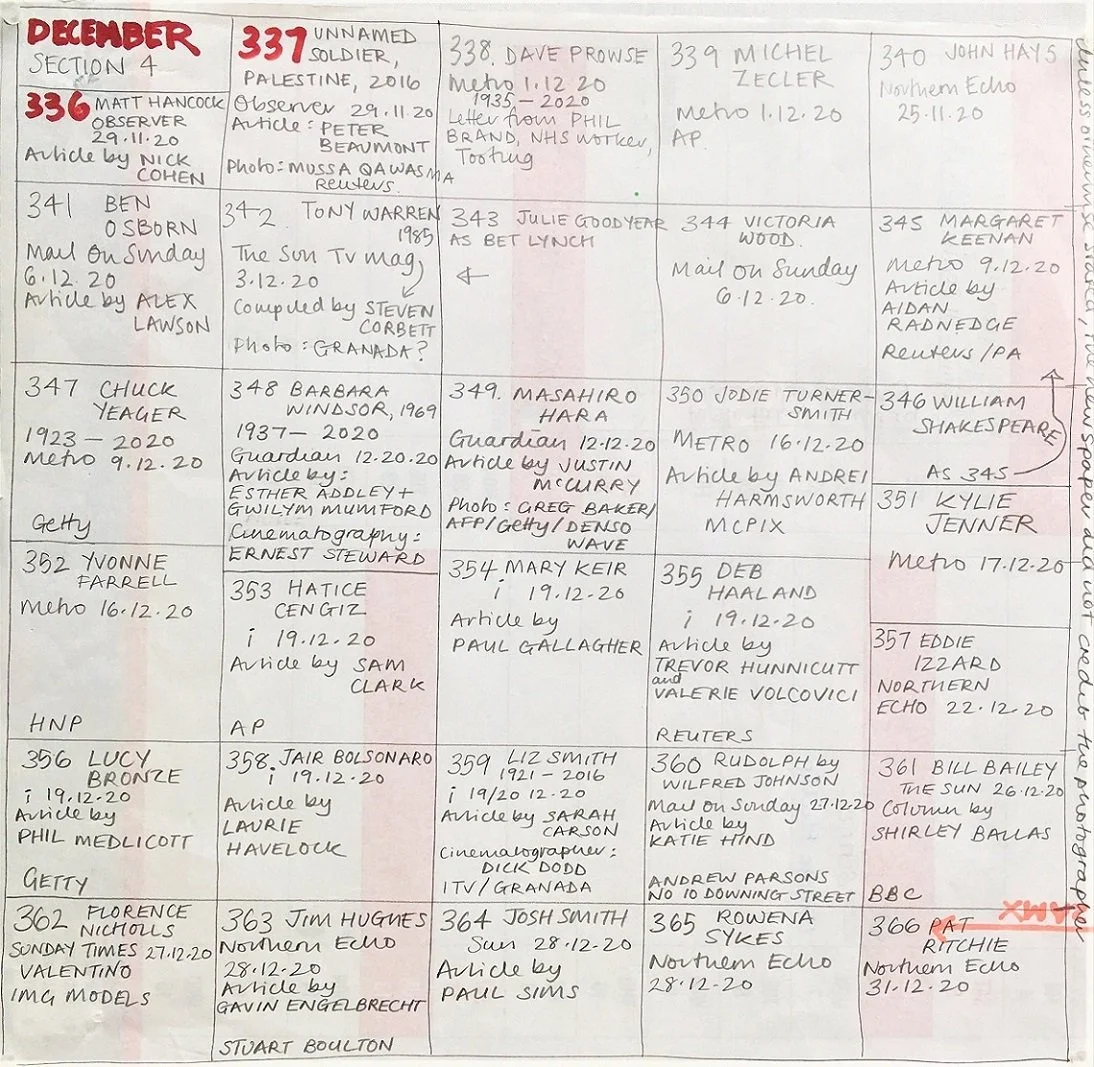 DECEMBER
SECTION 4
336 MATT HANCOCK
OBSERVER
29.11.20
Article by NICK
COHEN
337 UNNAMED
SOLDIER,
PALESTINE, 2016
Observer 29.11.20
Article: PETER
BEAUMONT
Photo: MUSSA QAWASMA
Reuters.
338. DAVE PROWSE
Metro 1.12.20
1935 - 2020
Letter from PHIL
BRAND, NHS worker,
Tooting
339 MICHEL
ZECLER
Metro 1.12.20
AP.
340 JOHN HAYS
Northern Echo
25.11.20
341 BEN
OSBORN
Mail On Sunday
6.12.20
Article by ALEX
LAWSON
342 TONY WARREN
1985
The Sun TV mag
3.12.20
Compiled by STEVEN
CORBETT
Photo: GRANADA?
343 JULIE GOODYEAR
AS BET LYNCH
←
344 VICTORIA
WOOD.
Mail on Sunday
6.12.20.
345 MARGARET
KEENAN
Metro 9.12.20
Article by
AIDAN
RADNEDGE
Reuters/PA
347 CHUCK
YEAGER
1923 - 2020
Metro 9.12.20
Getty
348 BARBARA
WINDSOR, 1969
1937 - 2020
Guardian 12.20.20
Article by:
ESTHER ADDLEY +
GWILYM MUMFORD
Cinematography:
ERNEST STEWARD
349. MASAHIRO
HARA
Guardian 12.12.20
Article by JUSTIN
McCURRY
Photo: GREG BAKER/
AFP/Getty/DENSO
WAVE
350 JODIE TURNER-
SMITH
METRO 16.12.20
Article by ANDREI
HARMSWORTH
MCPIX
346 WILLIAM
SHAKESPEARE
AS 345
351 KYLIE
JENNER
Metro 17.12.20
352 YVONNE
FARRELL
Metro 16.12.20
HNP
353 HATICE
CENGIZ
i 19.12.20
Article by SAM
CLARK
AP
354 MARY KEIR
i 19.12.20
Article by
PAUL GALLAGHER
355 DEB
HAALAND
i 19.12.20
Article by
TREVOR HUNNICUTT
and
VALERIE VOLCOVICI
REUTERS
357 EDDIE
IZZARD
NORTHERN
ECHO 22.12.20
356 LUCY
BRONZE
i 19.12.20
Article by
PHIL MEDLICOTT
GETTY
358. JAIR BOLSONARO
i 19.12.20
Article by
LAURIE
HAVELOCK
359 LIZ SMITH
1921 - 2016
i 19/20 12.20
Article by SARAH
CARSON
Cinematographer:
DICK DODD
ITV/GRANADA
360 RUDOLPH by
WILFRED JOHNSON
Mail on Sunday 27.12.20
Article by
KATIE HIND
ANDREW PARSONS
NO 10 DOWNING STREET
361 BILL BAILEY
THE SUN 26.12.20
Column by
SHIRLEY BALLAS
BBC
362 FLORENCE
NICHOLLS
SUNDAY TIMES 27.12.20
VALENTINO
IMG MODELS
363 JIM HUGHES
Northern Echo
28.12.20
Article by
GAVIN ENGELBRECHT
STUART BOULTON
364 JOSH SMITH
Sun 28.12.20
Article by
PAUL SIMS
365 ROWENA
SYKES
Northern Echo
28.12.20
366 PAT
RITCHIE
Northern Echo
31.12.20
otherwise stated, the newspaper did not credit the photographer